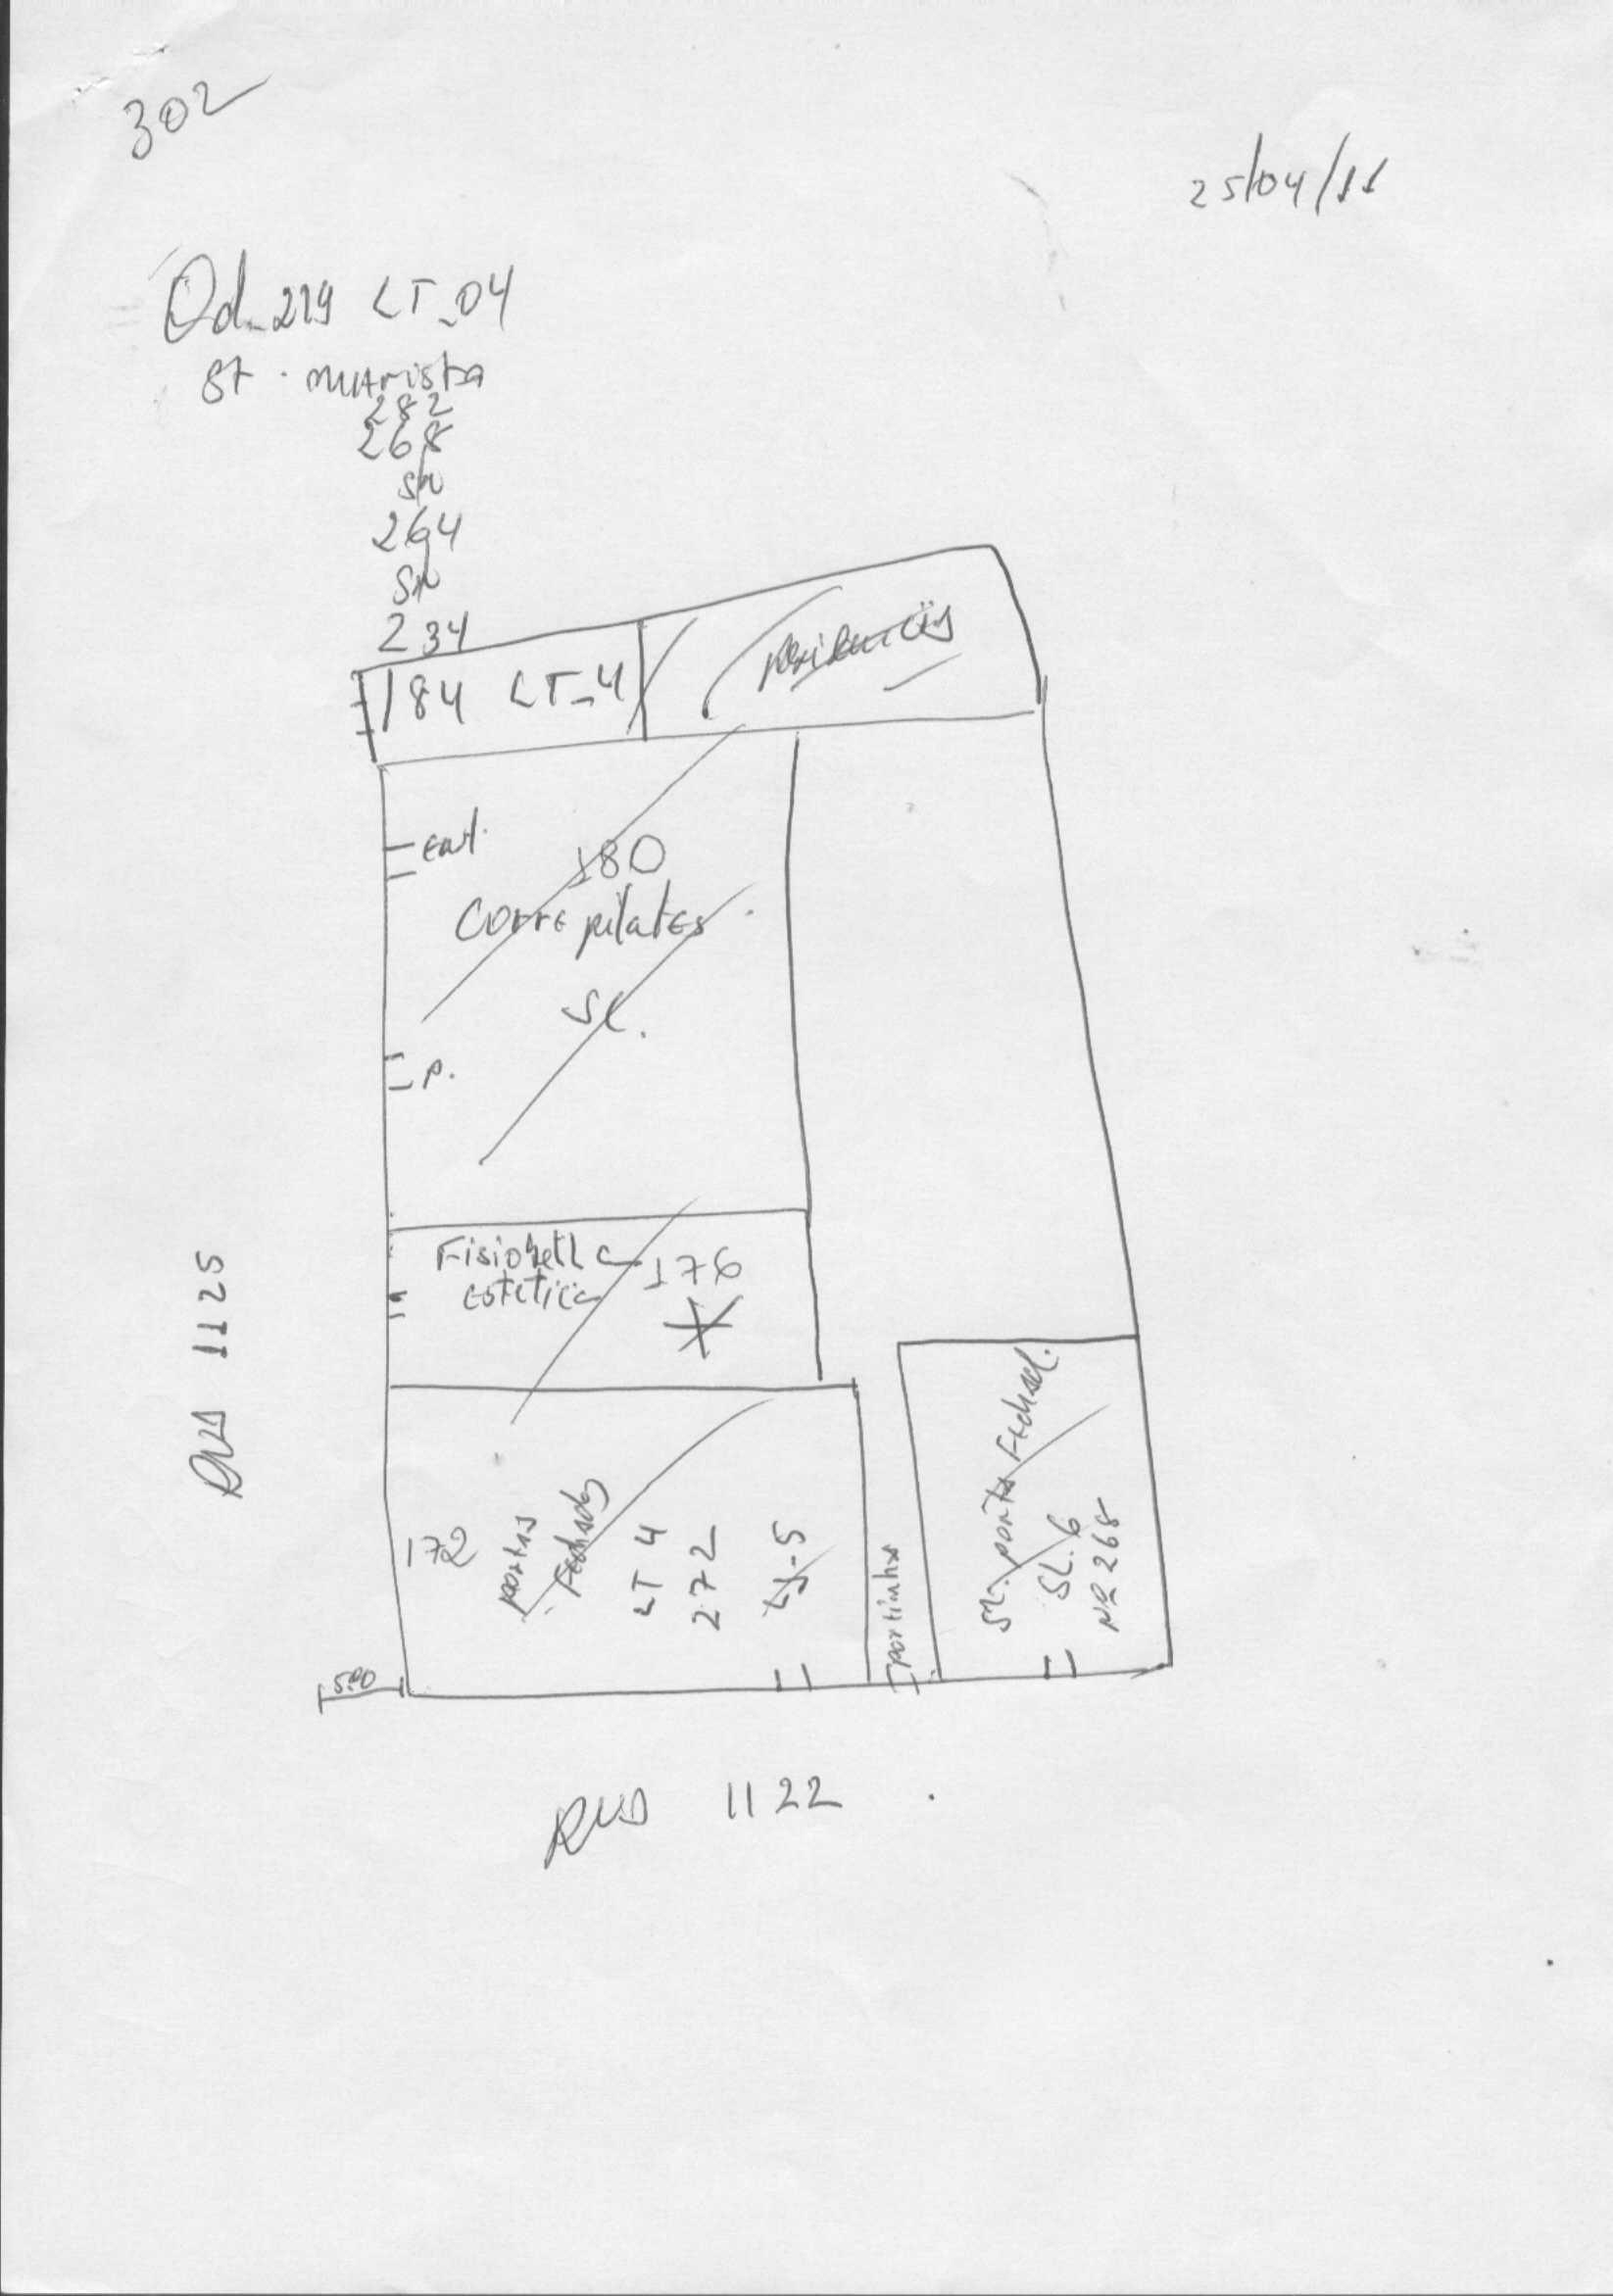 302
25/04/11
Qd_219 LT_04
St. marista
282
268
S/N
264
S/N
234
184 LT_4
Residencias
ent.
180
Corre pilates
SL.
P.
Fisiobella
estetica
176
RUA 1125
172
portas
Fechadas
LT 4
272
LJ-5
portinha
SL. porta Fechad.
SL. 6
Nº 268
5.00
RUA 1122